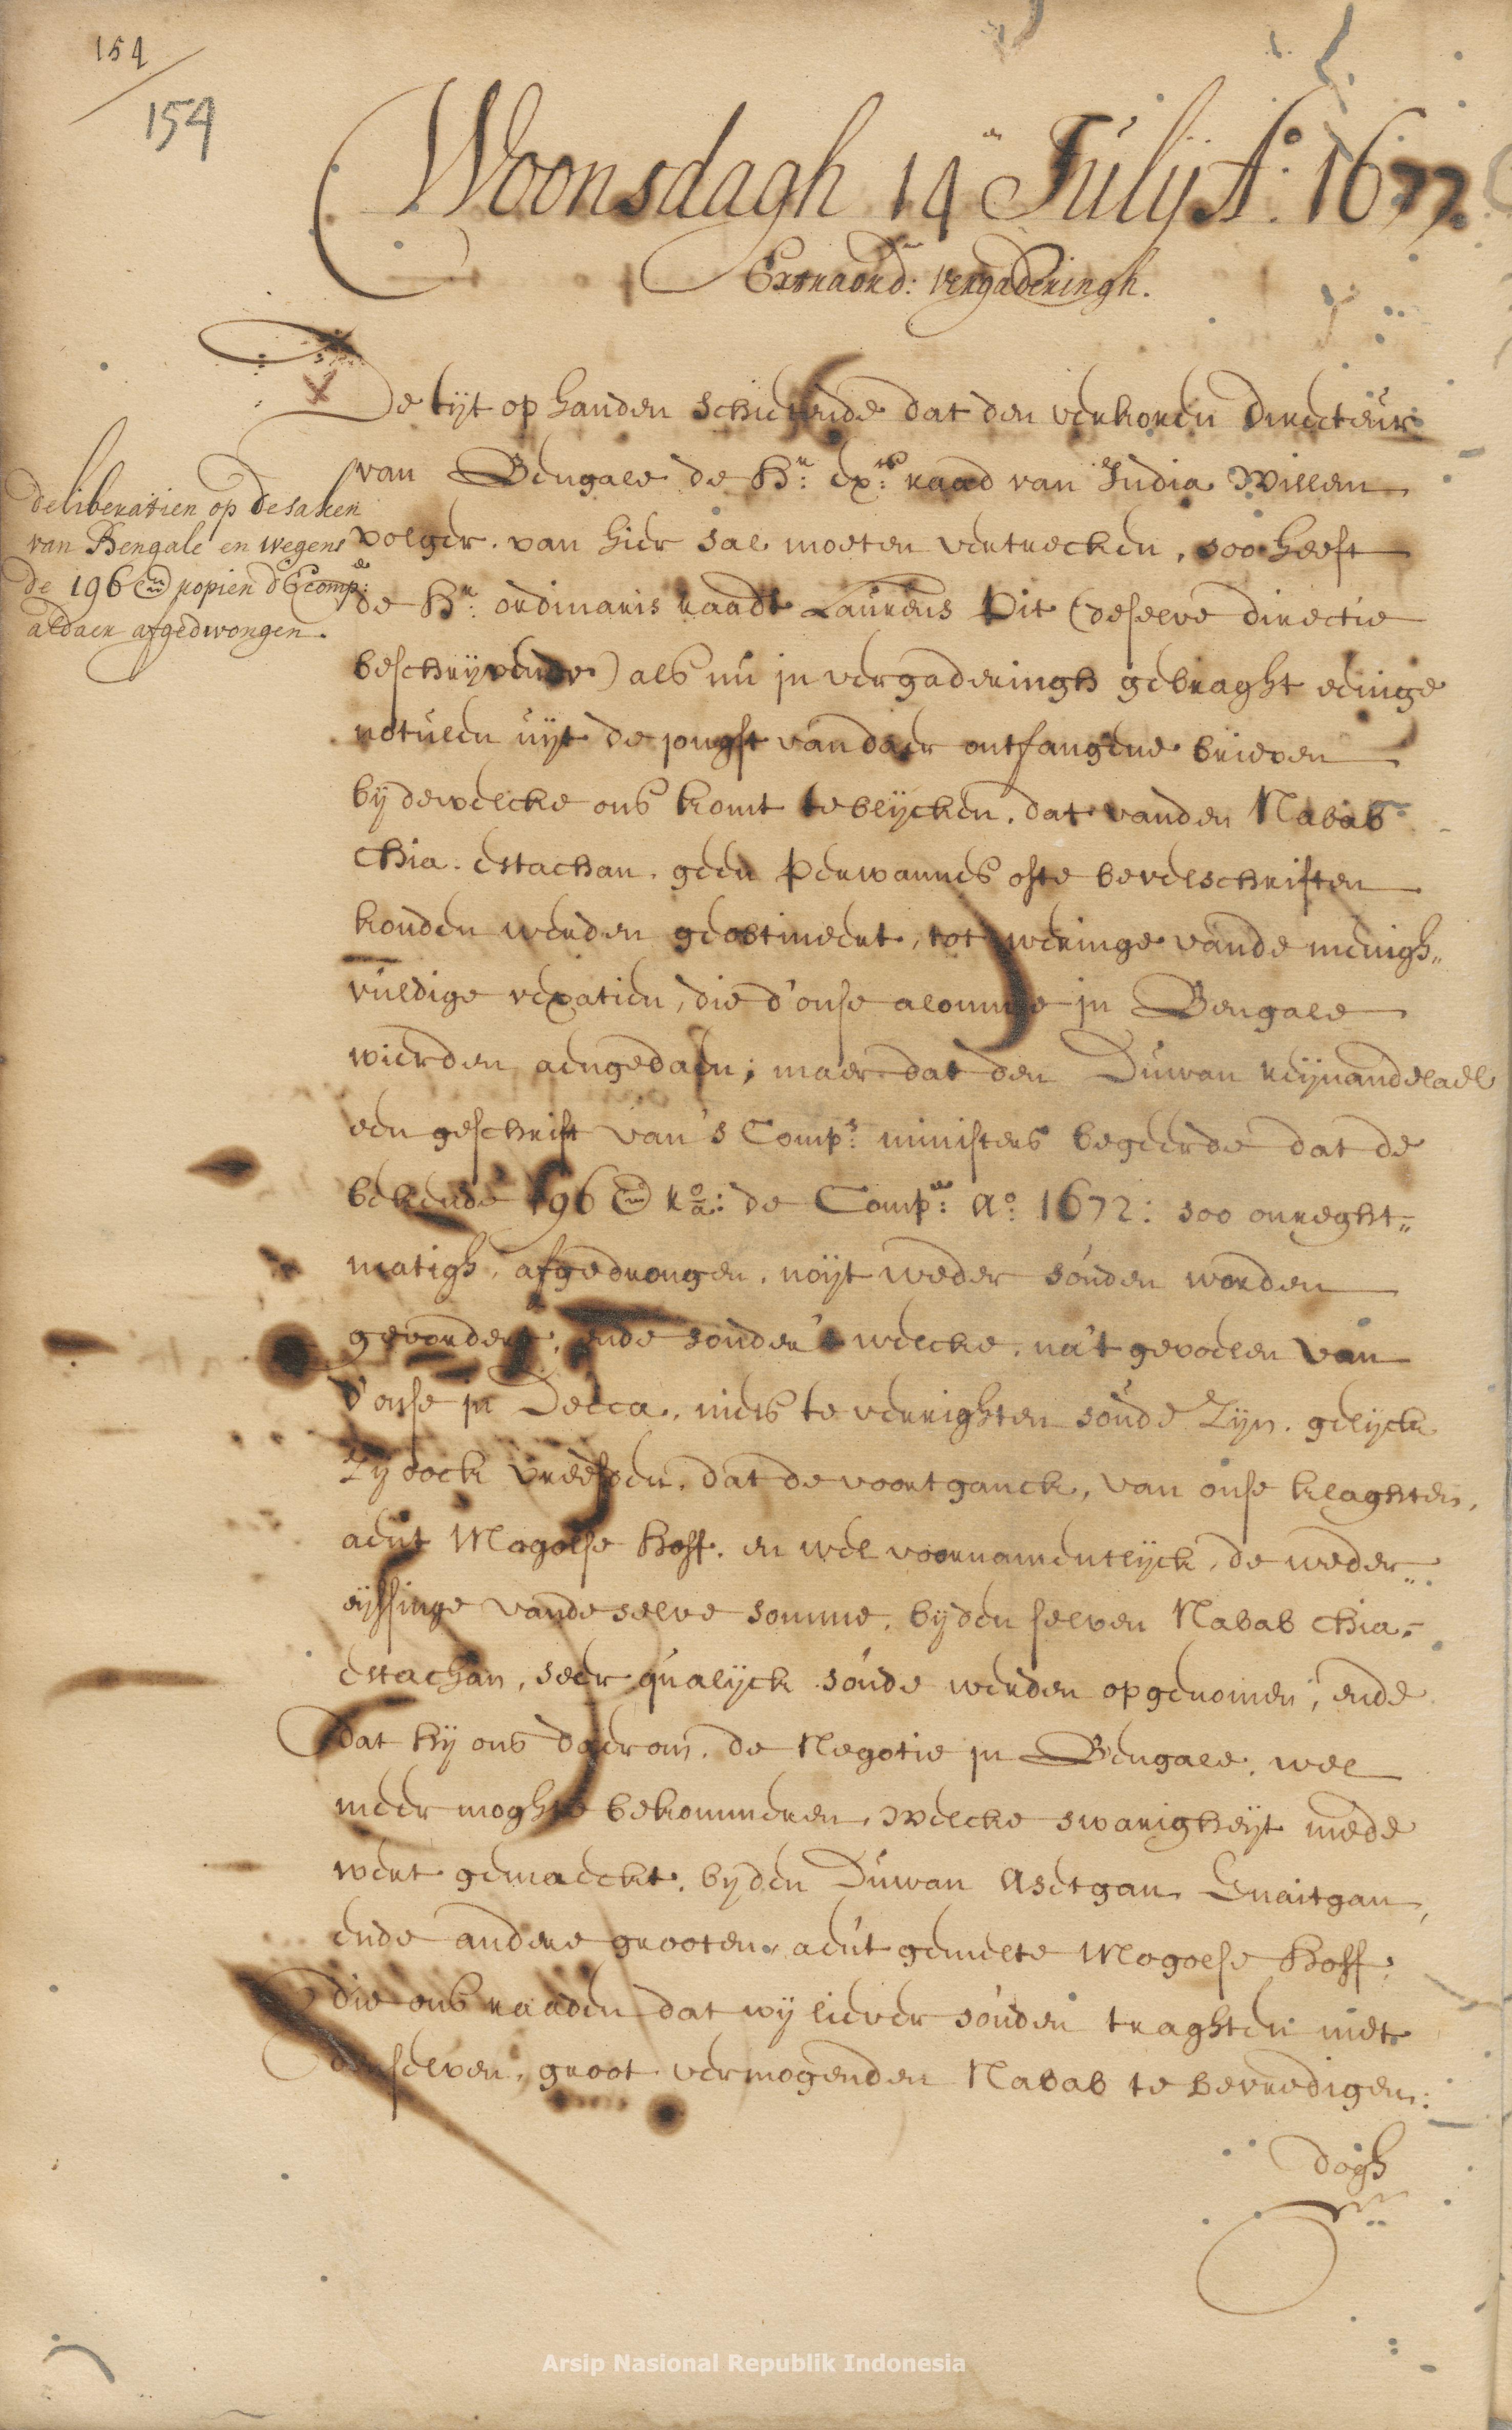 154
154
Woonsdagh 14en Julij Ao. 1677.
Extraord: vergaderingh.
De tijt op handen schietende dat den verkoren directeur
van Bengale de Hr: exs: raad van India Willem
volger van hier sal moeten vertrecken, soo heeft
de Hr: ordinaris raadt Laurens Pit (deselve directie
beschrijvende) als nu in vergaderingh gebraght eenige
notulen uijt de jongst van daer ontfangene brieven
bij dewelcke ons komt te blijcken, dat vanden Nabab
Chia-estachan, geen perwannes ofte bevelschriften
konden werden geobtineert, tot weringe vande menigh„
vuldige vexatien, die d'onse alomme in Bengale
wierden aengedaen; maer dat den Duwan reijnandelael
een geschrift van 's Comps: ministers begeerde dat de
bekende 196 m ra: de Compe: Ao: 1672: soo onreght„
matigh, afgedrongen, noijt weder souden worden
gevordert, ende sonder 't welcke, na 't gevoelen van
d'onse in Decca, niets te verrighten soude zijn, gelijck
zij oock vreesden, dat de voortganck, van onse klaghten,
aen't Mogolse hoff, en wel voornamentlijck, de weder„
eijssinge vande selve somme, bij den selven Nabab Chia-
estachan, seer qualijck soude werden opgenomen, ende
dat hij ons daerom, de Negotie in Bengale, wel
meer moghte bekommeren, welcke swarigheijt mede
wert gemaeckt, bij den Duwan Asetgan, Enaitgan,
ende andere grooten, aen't gemelte Mogolse hoff,
die ons raaden dat wij liever souden traghten met
denselven, groot vermogenden Nabab te bevredigen:
dogh
deliberatien op de saken
van Bengale en wegens
de 196 m ropien d'E comp:e
aldaer afgedwongen.
Arsip Nasional Republik Indonesia